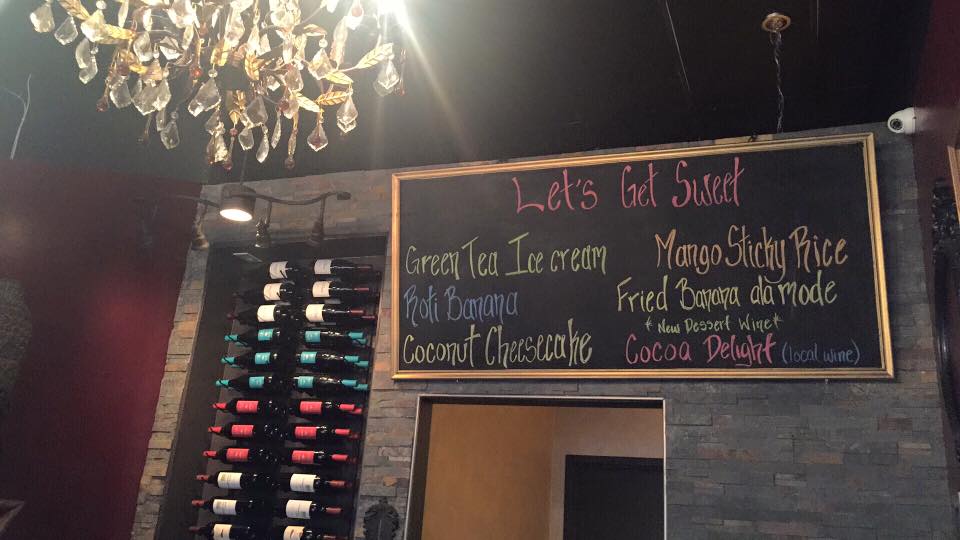 Let's Get Sweet
Green Tea Ice cream
Roti Banana
Coconut Cheesecake
Mango Sticky Rice
Fried Banana alá mode
*New Dessert Wine*
Cocoa Delight (local wine)